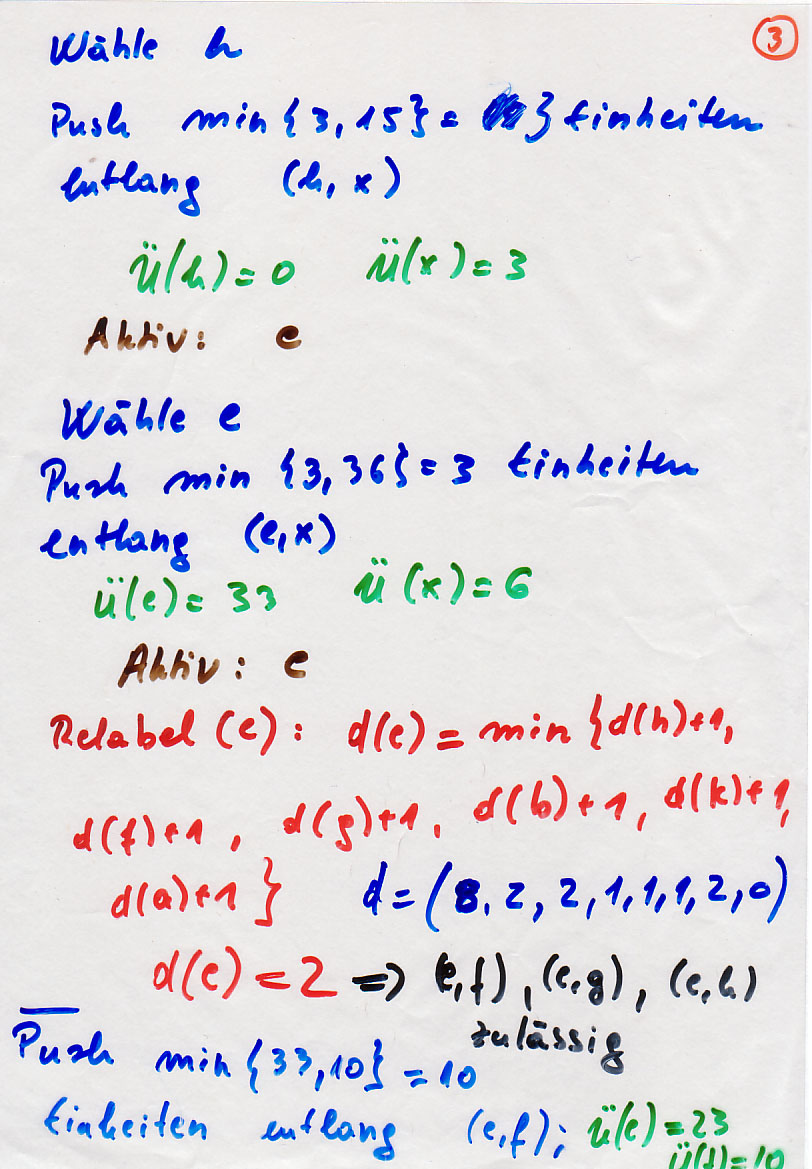 3
Wähle h
Push min{3,15} = 3 Einheiten
entlang (h,x)
ü(h)=0 ü(x)=3
Aktiv: e
Wähle e
Push min {3,36}=3 Einheiten
entlang (e,x)
ü(e)=33 ü(x)=6
Aktiv: e
Relabel (e): d(e)=min{d(h)+1,
d(f)+1, d(g)+1, d(b)+1, d(k)+1,
d(a)+1} d=(8,2,2,1,1,1,2,0)
d(e)=2 => (e,f), (e,g), (e,h)
zulässig
Push min{33,10}=10
Einheiten entlang (e,f); ü(e)=23
ü(f)=10